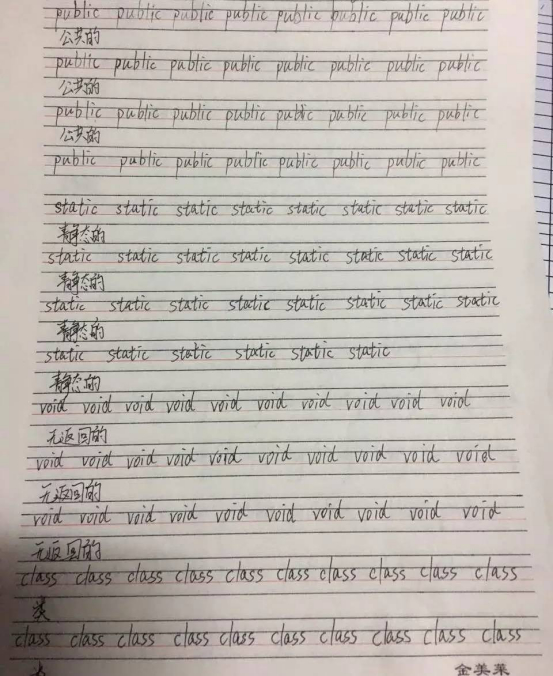 public public public public public public public public
公共的
public public public public public public public public
公共的
public public public public public public public public
公共的
public public public public public public public public
static static static static static static static static
静态的
static static static static static static static static
静态的
static static static static static static static static
静态的
static static static static static static
静态的
void void void void void void void void void void
无返回的
void void void void void void void void void void
无返回的
void void void void void void void void void void
无返回的
class class class class class class class class class class
类
class class class class class class class class class class
金美莱